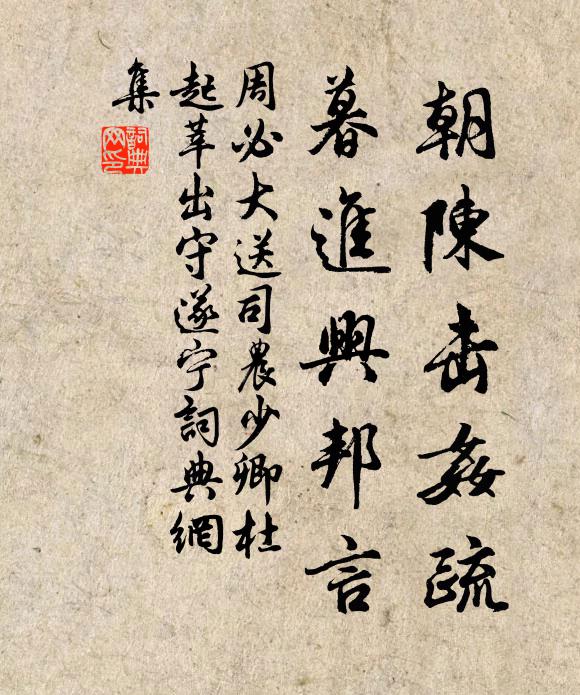 朝陳击姦疏
暮進興邦言
周必大送司農少卿杜
起莘出守遂宁詞典網
集
詞典
网印